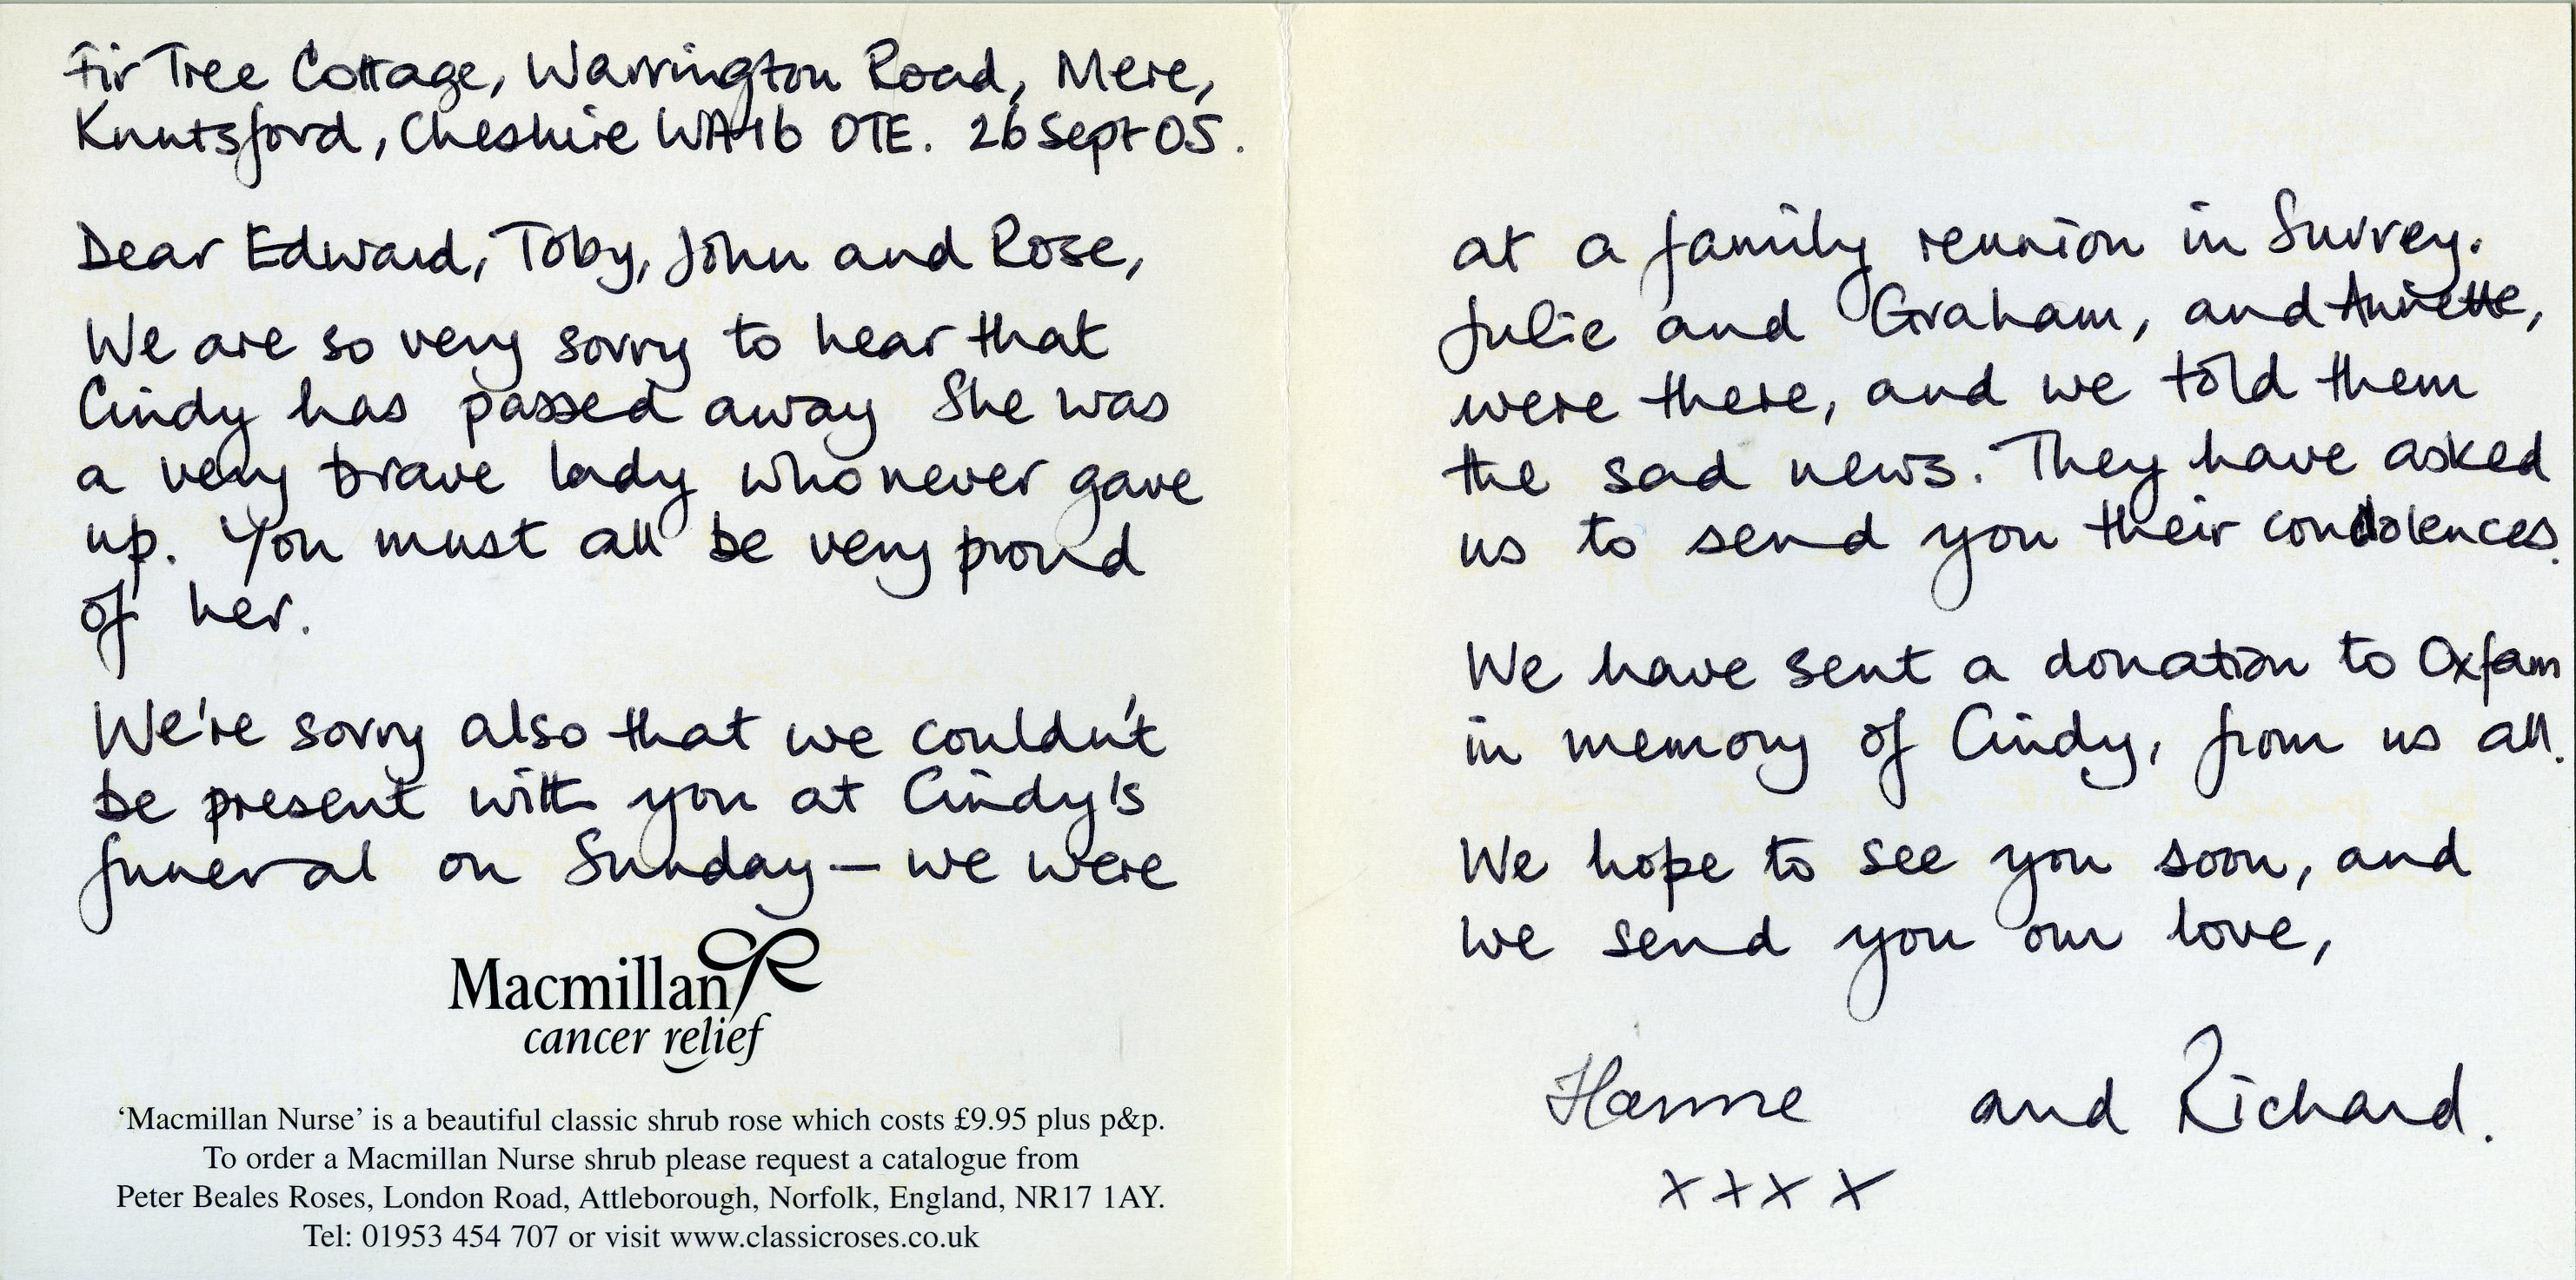 Fir Tree Cottage, Warrington Road, Mere,
Knutsford, Cheshire WA16 0TE. 26 Sept 05.
Dear Edward, Toby, John and Rose,
We are so very sorry to hear that
Cindy has passed away She was
a very brave lady who never gave
up. You must all be very proud
of her.
We're sorry also that we couldn't
be present with you at Cindy's
funeral on Sunday — we were
Macmillan
cancer relief
‘Macmillan Nurse’ is a beautiful classic shrub rose which costs £9.95 plus p&p.
To order a Macmillan Nurse shrub please request a catalogue from
Peter Beales Roses, London Road, Attleborough, Norfolk, England, NR17 1AY.
Tel: 01953 454 707 or visit www.classicroses.co.uk
at a family reunion in Surrey.
Julie and Graham, and Annette,
were there, and we told them
the sad news. They have asked
us to send you their condolences.
We have sent a donation to Oxfam
in memory of Cindy, from us all.
We hope to see you soon, and
we send you our love,
Hanne and Richard.
xxxx